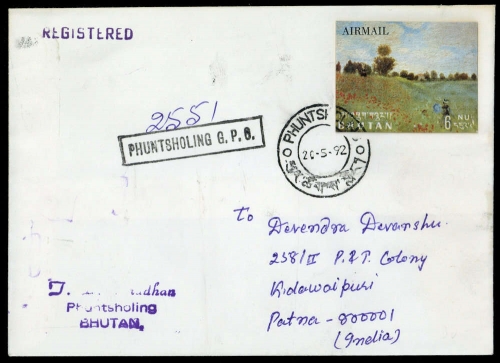 REGISTERED
AIRMAIL
2551
PHUNTSHOLING G.P.O.
BHUTAN
6 NU
PHUNTSHO
20-5-92
To Devendra Devanshu.
258/II P.&T. Colony
Kidawaipuri
Patna - 800001
(India)
Phuntsholing
BHUTAN.